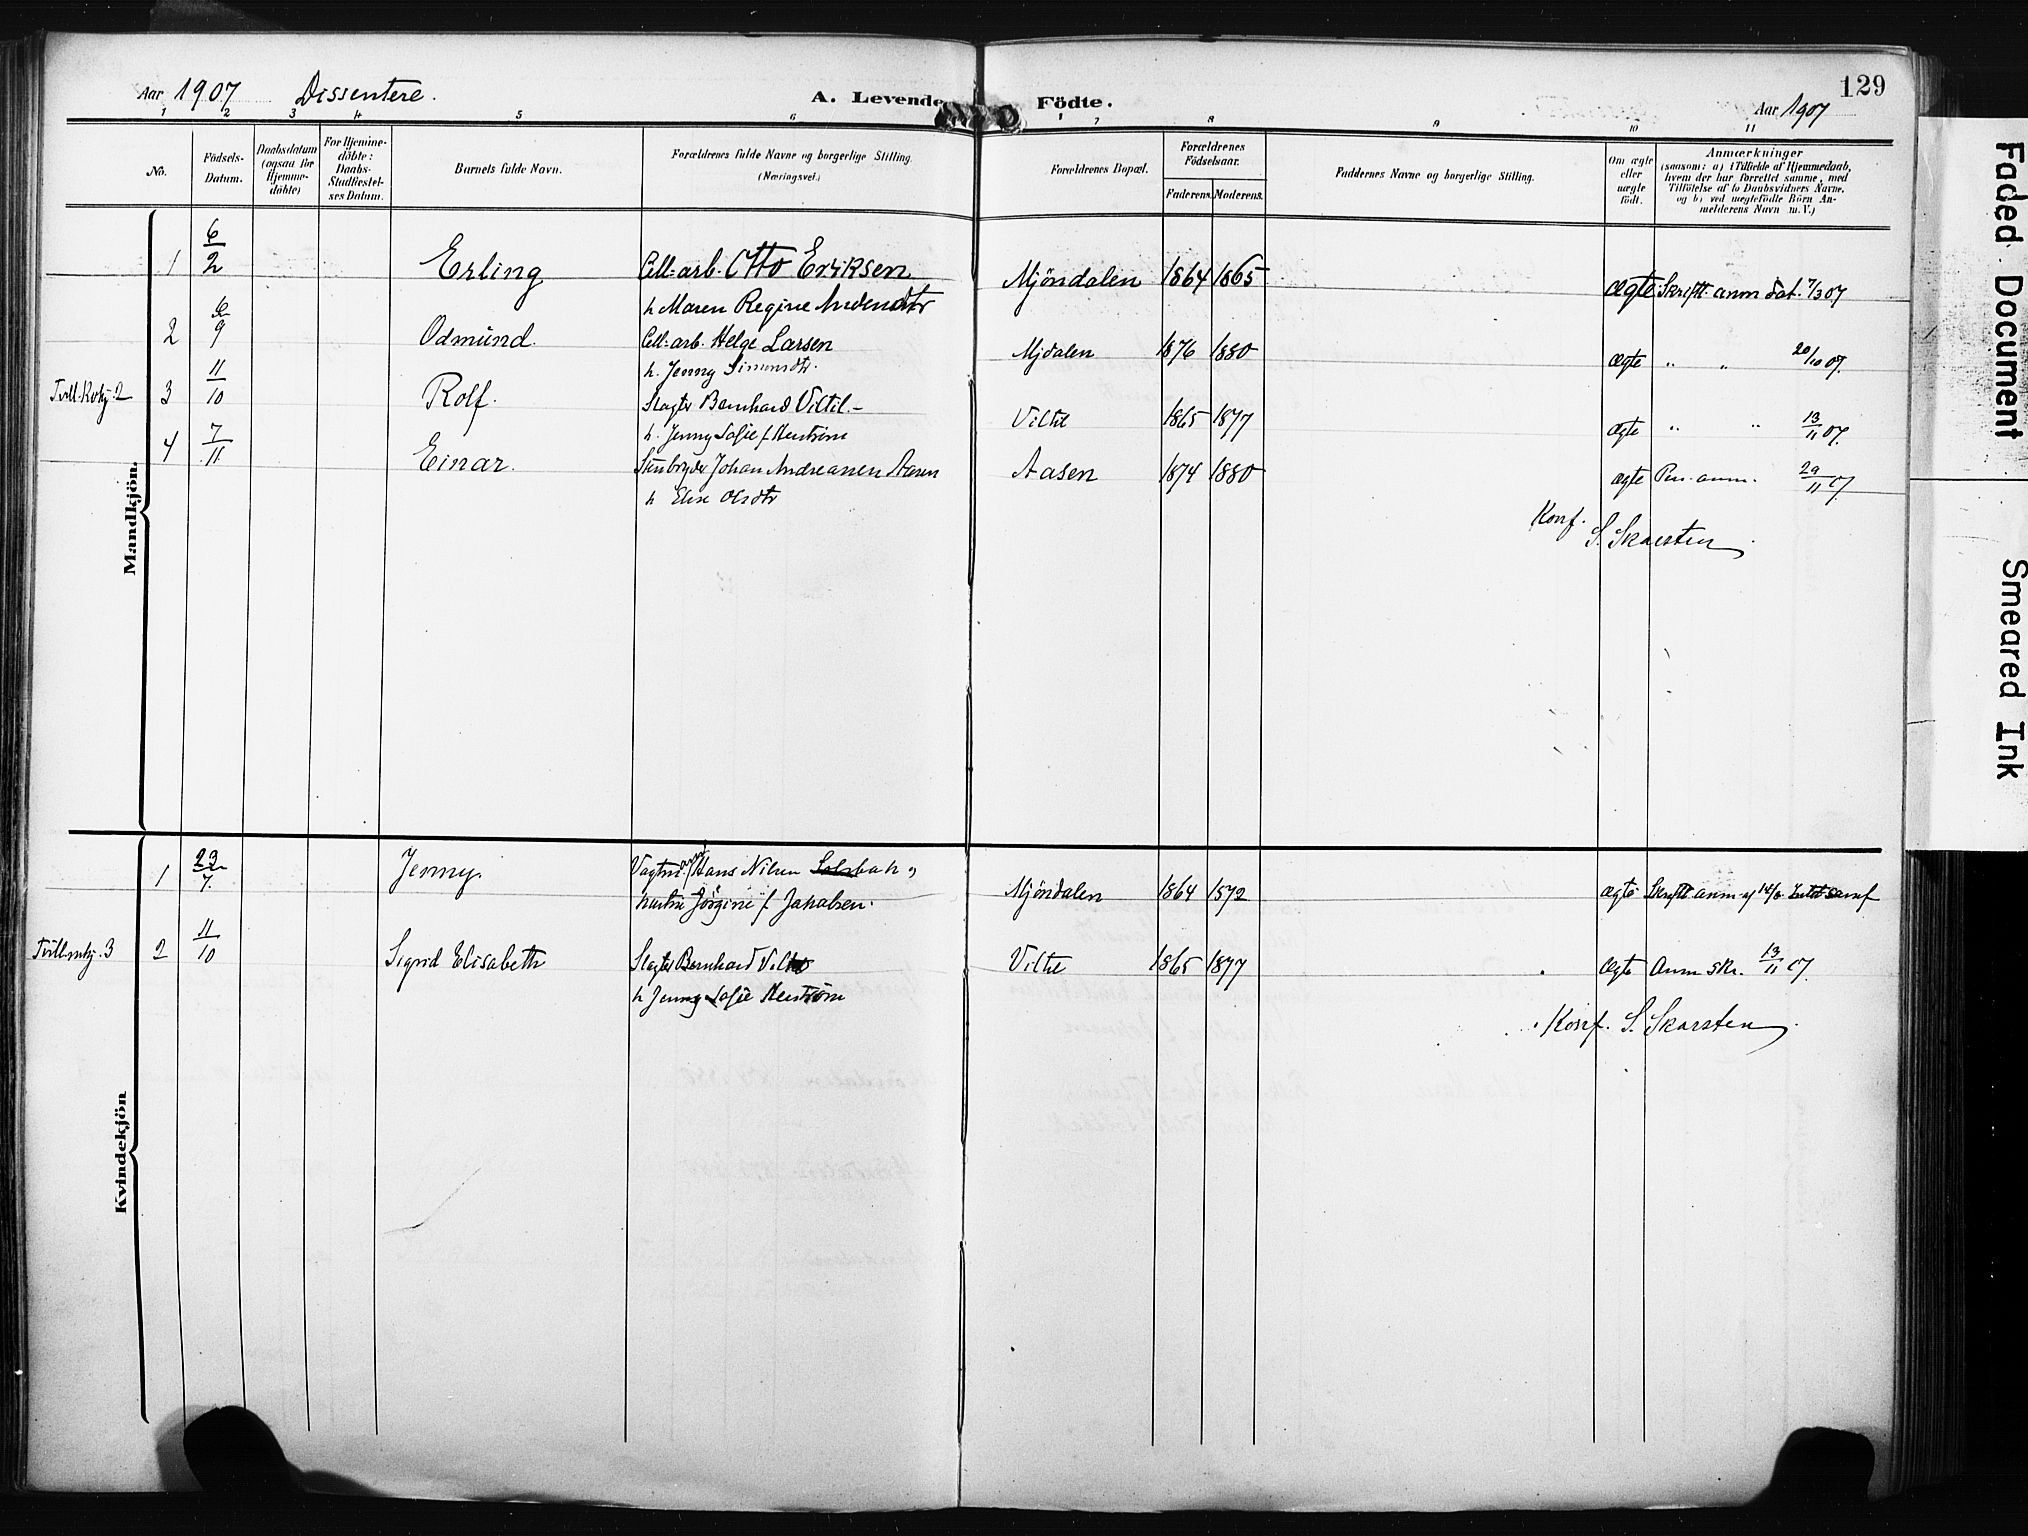 129
Aar 1907 Dissentere. A. Levende Födte. Aar 1907
1 2 3 4 5 6 7 8 9 10 11
No.
Födsels-
Datum.
Daabsdatum
(ogsaa for
Hjemme-
döbte)
For Hjemme-
döbte:
Daabs-
Stadfæstel-
ses Datum.
Barnets fulde Navn.
Forældrenes fulde Navne og borgerlige Stilling.
(Næringsvei.)
Forældrenes Bopæl.
Forældrenes
Födselsaar.
Faderens. Moderens.
Faddernes Navne og borgerlige Stilling.
Om ægte
eller
uægte
födt.
Anmærkninger
(saasom: a) i Tilfælde af Hjemmedaab,
hvem der har forrettet samme, med
Tilföielse af to Daabsvidners Navne,
og b) ved uægtefödte Börn An-
melderens Navn m. V.)
Mandkjön.
1 6/2 Erling Cell-arb. Otto Eriksen Mjöndalen 1864 1865 ægte Skriftl. anm dat. 7/3 07
h. Maren Regine
2 9 Odmund. Cell-arb. Helge Larsen Mjdalen 1876 1880 ægte " " 20/10 07.
h. Jenny Simensdtr.
3 11/10 Rolf. Slagter Bernhard Viltil.- 1865 1877 ægte " " 13/11 07.
h. Jenny Sofie f.
4 7/11 Einar. Johan Andreasen Aasen Aasen 1874 1880 ægte Pers. anm. 29/11 07
h. Elise Olsdtr
Konf.
S. Skarsten
Kvindekjön
1 23/7. Jenny. Hans Nilsen Mjöndalen 1864 1872 ægte Skriftl anm
hustru Jörgine f. Jakobsen.
2 11/10 Sigrid Elisabeth Slagter Bernhard 1865 1877 ægte Anm skr. 13/11 07.
h. Jenny Sofie
Konf. S. Skarsten
Faded Document
Smeared Ink